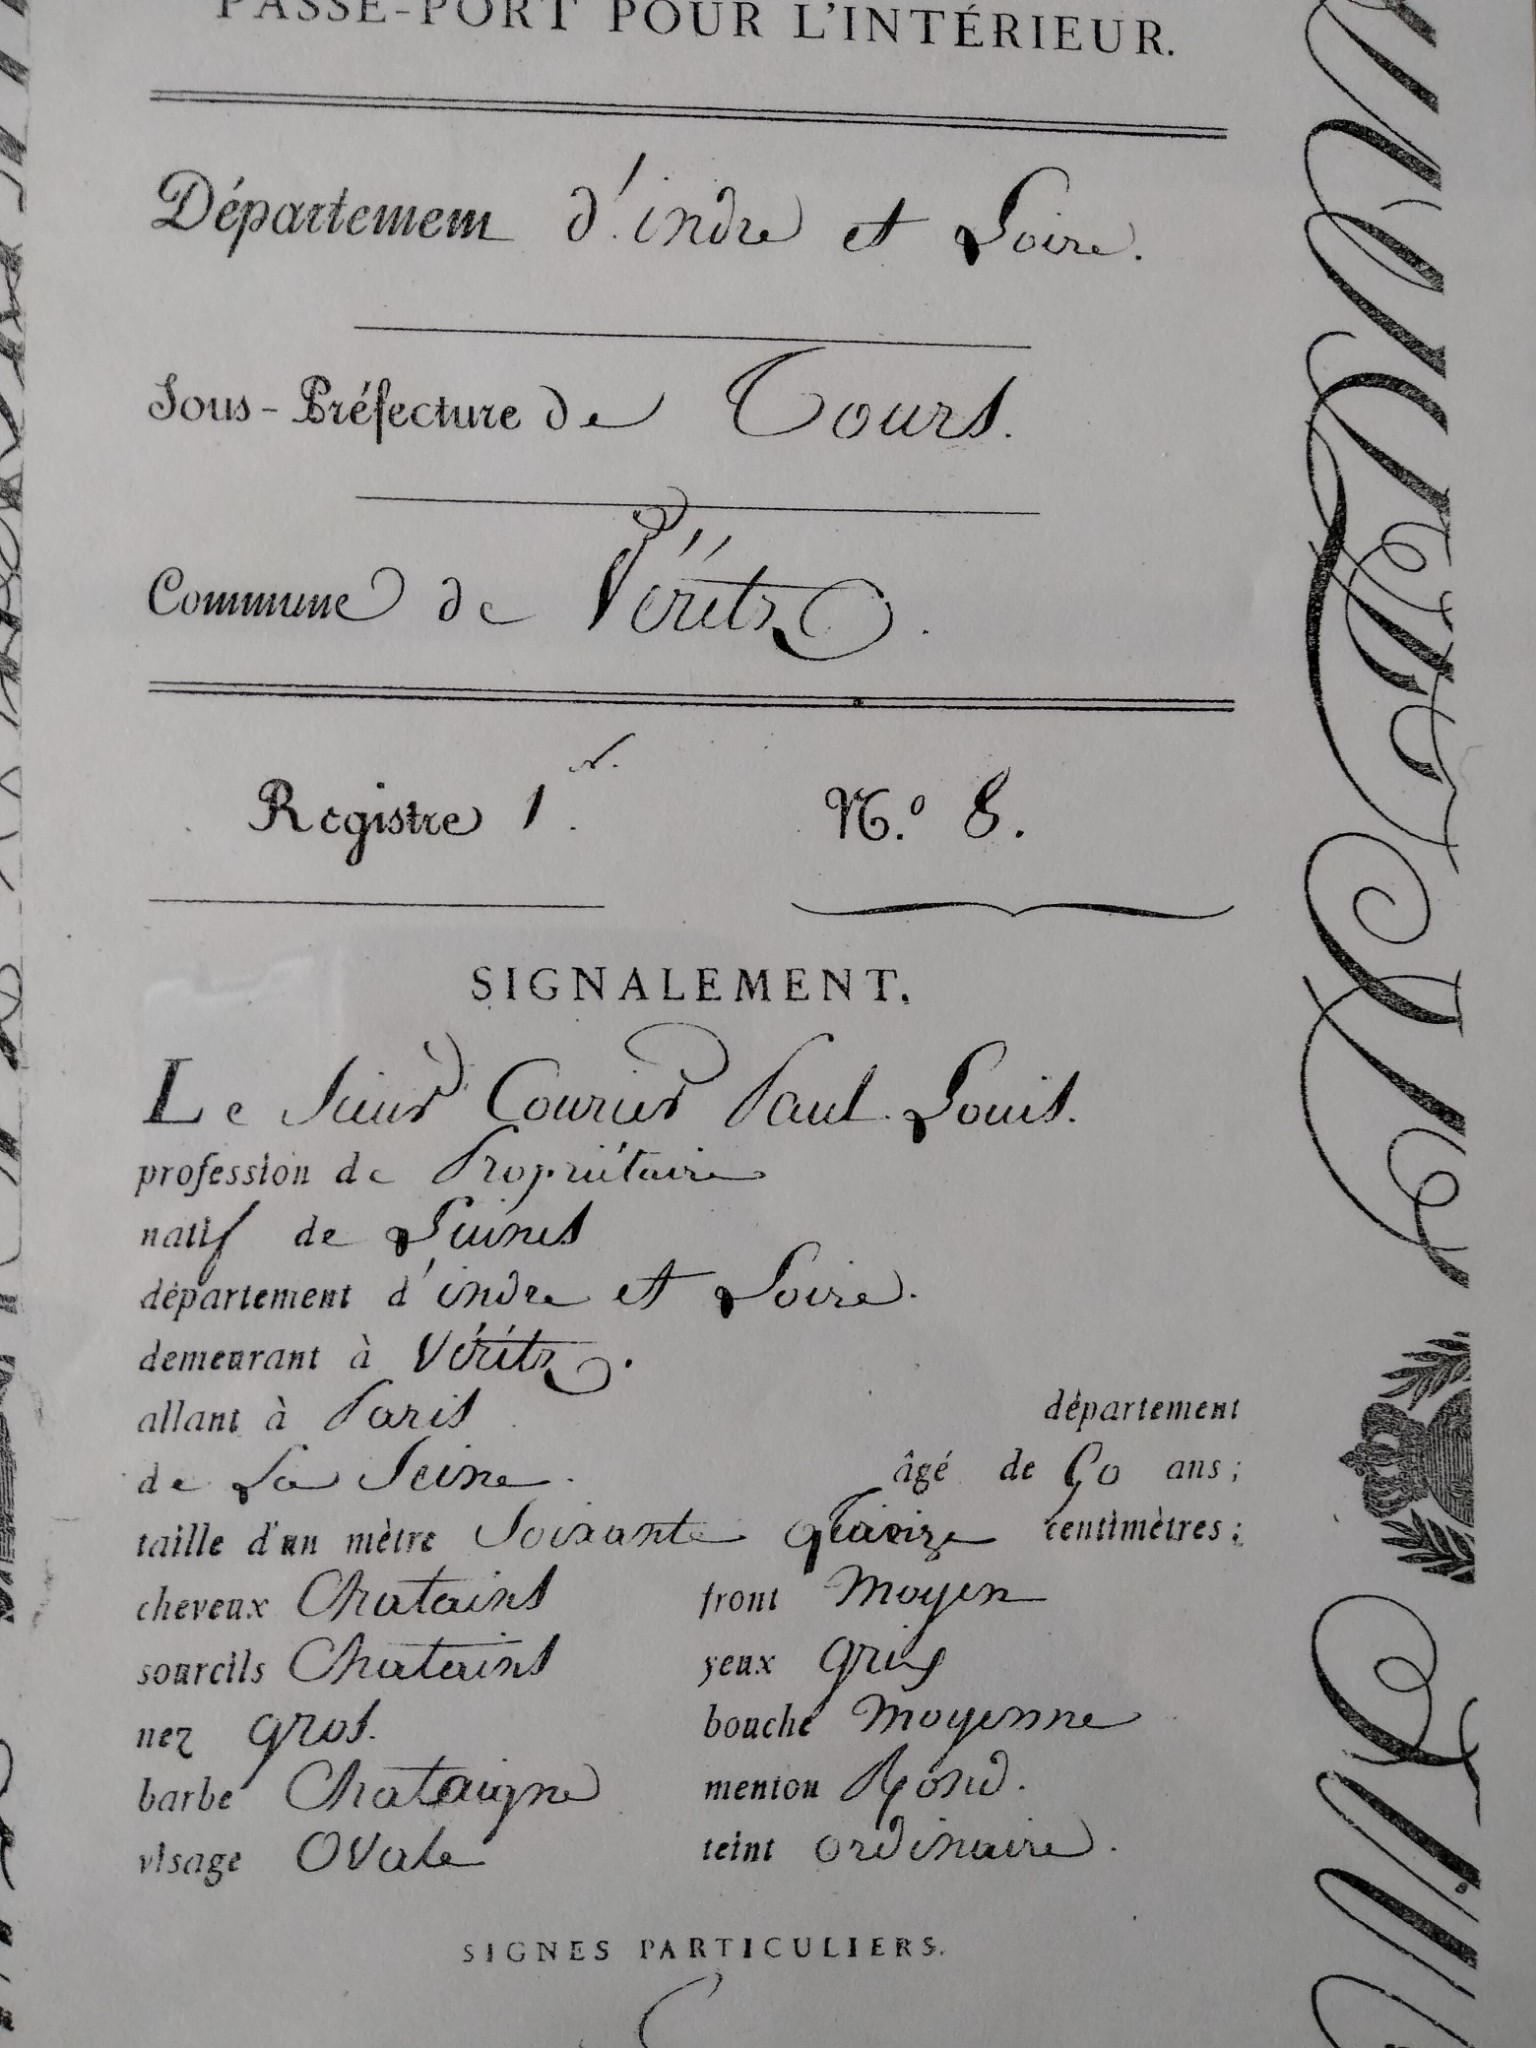 PASSE-PORT POUR L'INTÉRIEUR.
Département d'indre et Loire.
Sous-Préfecture de Tours.
Commune de Véritz.
Registre 1.er N.o 8.
SIGNALEMENT.
Le Sieur Courier Paul Louis.
profession de Propriétaire
natif de
département d'indre et Loire.
demeurant à Véritz.
allant à Paris département
de La Seine. âgé de 50 ans;
taille d'un mètre Soixante centimètres;
cheveux Chatains front Moyen
sourcils Chatains yeux gris
nez gros. bouche moyenne
barbe Chataigne menton Rond.
visage Ovale teint ordinaire.
SIGNES PARTICULIERS.